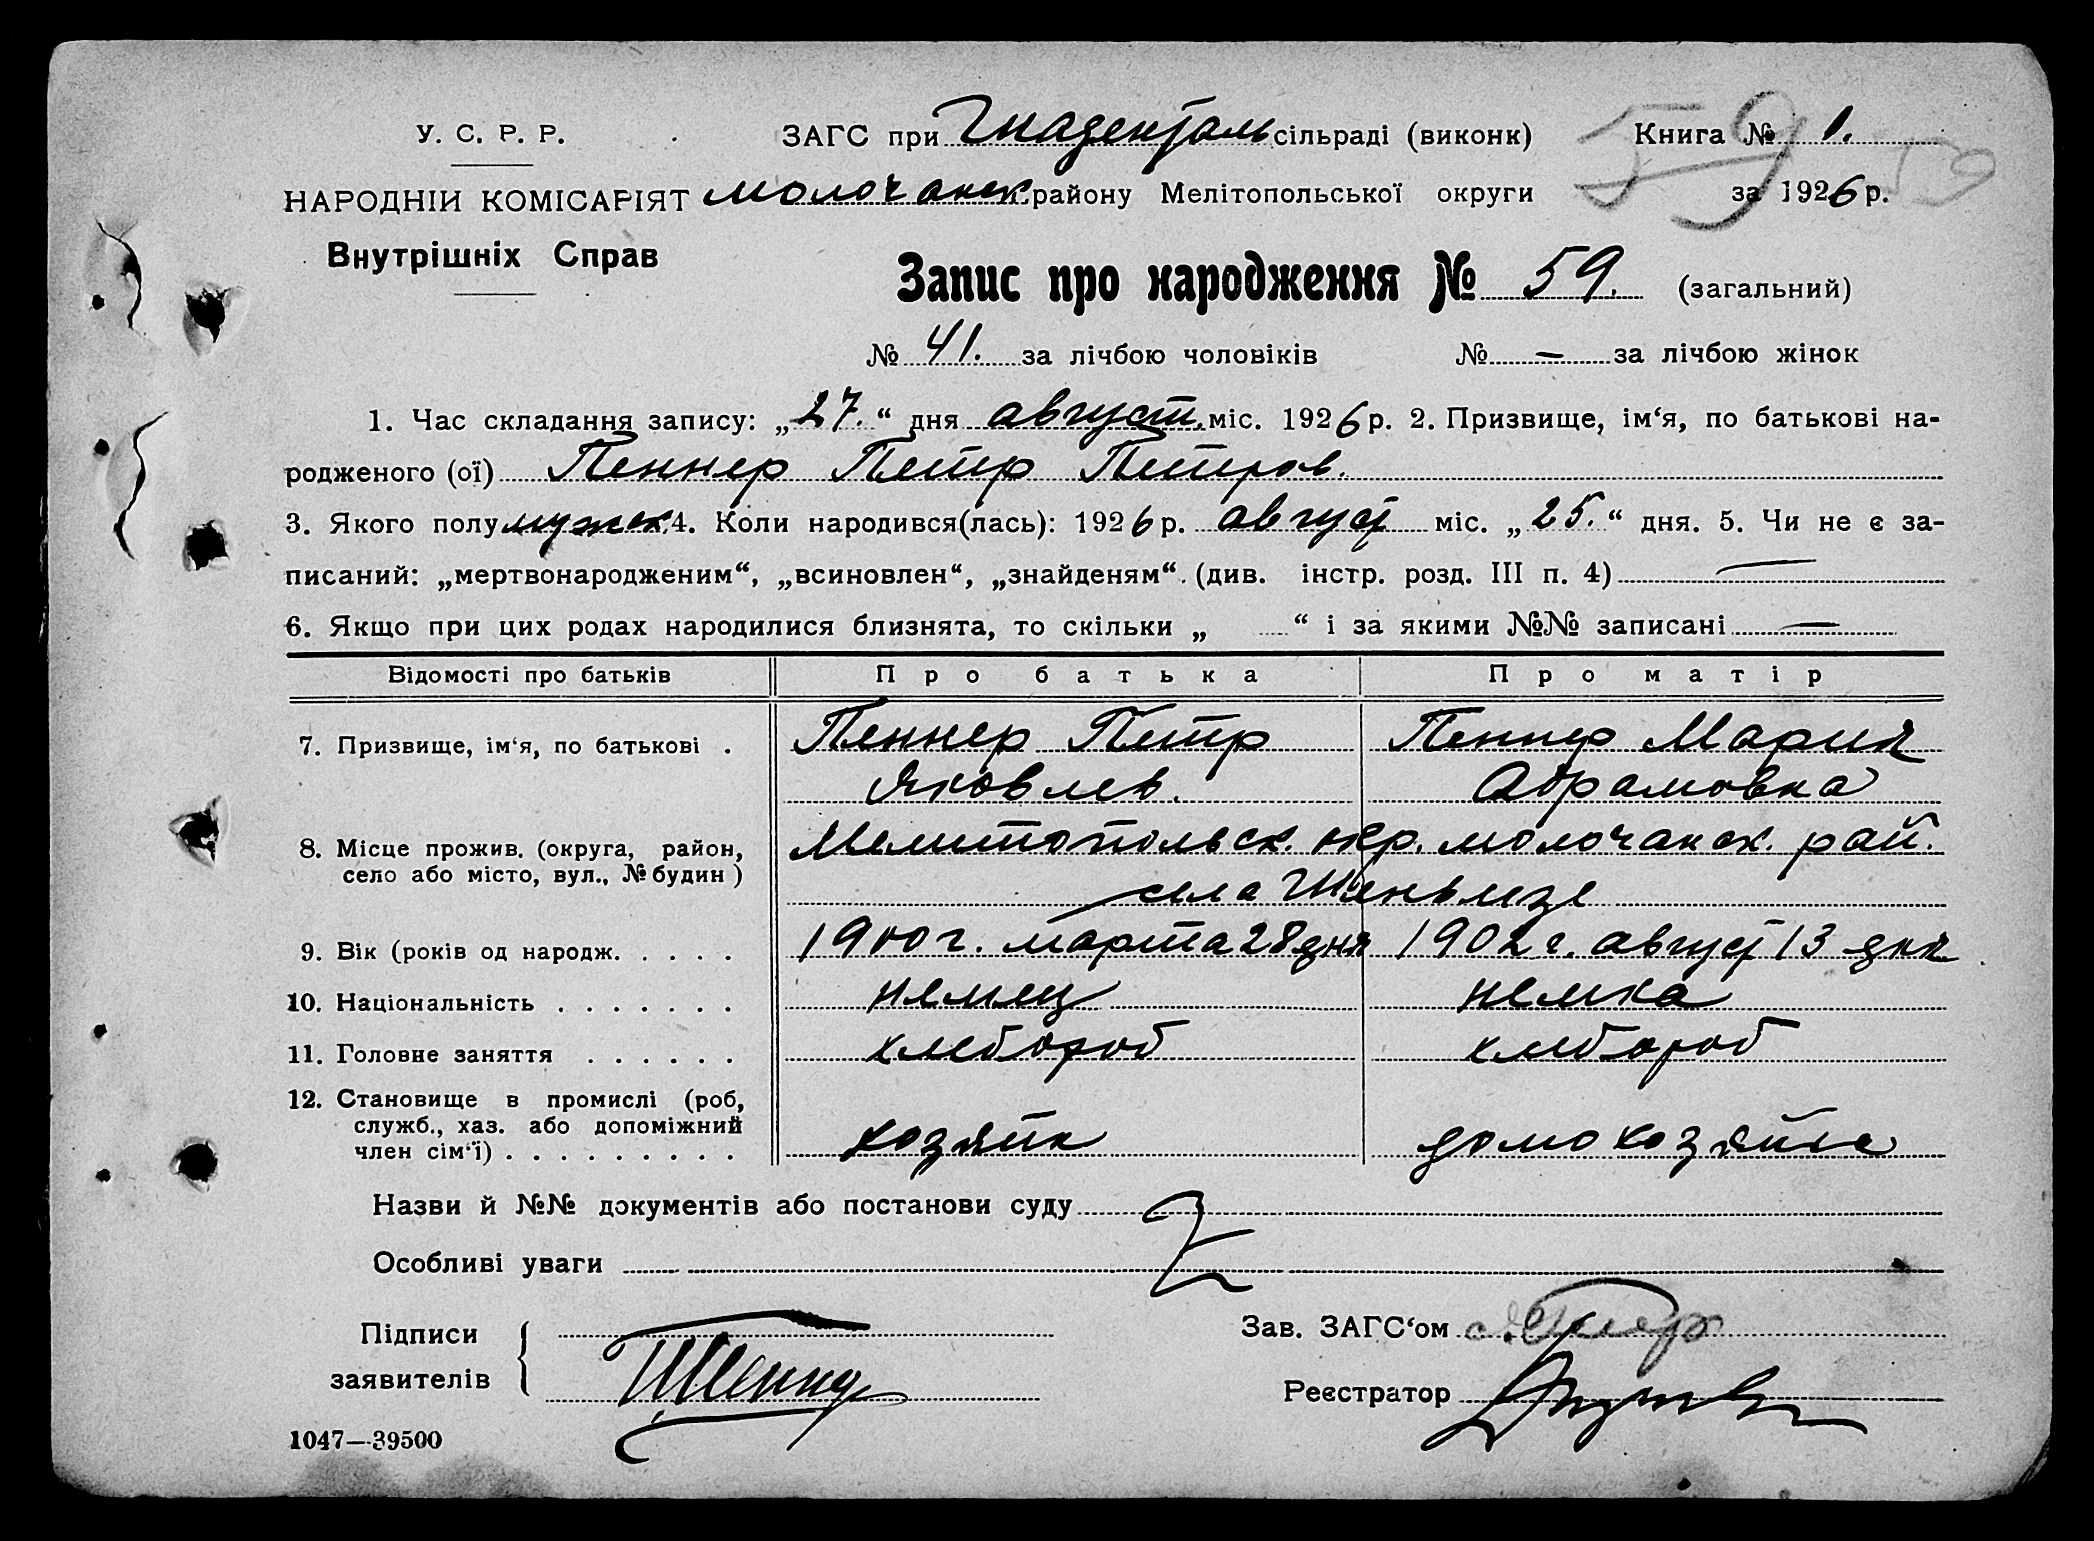 У. С. Р. Р.
НАРОДНІЙ КОМІСАРІЯТ
Внутрішніх Справ
ЗАГС при Гнадентальсільраді (виконк)
Молочанск. району Мелітопольської округи
Книга № 1.
за 1926 р.
59
59
Запис про народження № 59. (загальний)
№ 41. за лічбою чоловіків № — за лічбою жінок
1. Час складання запису: „27.“ дня август. міс. 1926 р. 2. Призвище, ім‘я, по батькові на-
родженого (ої) Пеннер Петр Петров.
3. Якого полу мужск. 4. Коли народився(лась): 1926 р. август міс. „25.“ дня. 5. Чи не є за-
писаний: „мертвонародженим“, „всиновлен“, „знайденям“. (див. інстр. розд. III п. 4) —
6. Якщо при цих родах народилися близнята, то скільки „ “ і за якими №№ записані —
Відомості про батьків Про батька Про матір
7. Призвище, ім‘я, по батькові . Пеннер Петр Пеннер Мария
Яковлев. Абрамовна
8. Місце прожив. (округа, район, село або місто, вул., № будин) Мелитопольск. окр. молочанск. рай.
села Шеньизе
9. Вік (років од народж. . . . . 1900 г. марта 28 дня 1902 г. август 13 дня
10. Національність . . . . . . . немец немка
11. Головне заняття . . . . . . хлебороб хлебороб
12. Становище в промислі (роб, служб., хаз. або допоміжний член сім‘ї) . . . . . . . . . хозяин домохозяйка
Назви й №№ документів або постанови суду
Особливі уваги
Підписи
заявителів
П Пеннер
Зав. ЗАГС‘ом
Реєстратор
1047—39500